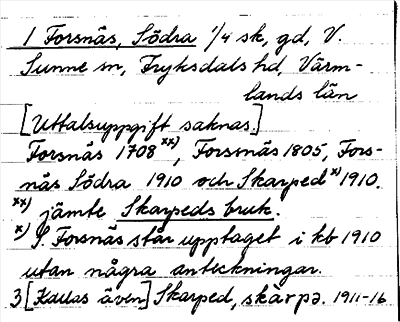 1 Forsnäs, Södra 1/4 sk, gd, V.
Sunne sn, Fryksdals hd, Värm-
lands län
[Uttalsuppgift saknas.]
Forsnäs 1708 xx), Forssnäs 1805, Fors-
näs Södra 1910 och Skarped x) 1910.
xx) jämte Skarpeds bruk.
x) S. Forsnäs står upptaget i kb 1910
utan några anteckningar.
3 [Kallas även] Skarped, skàrpə. 1911-16